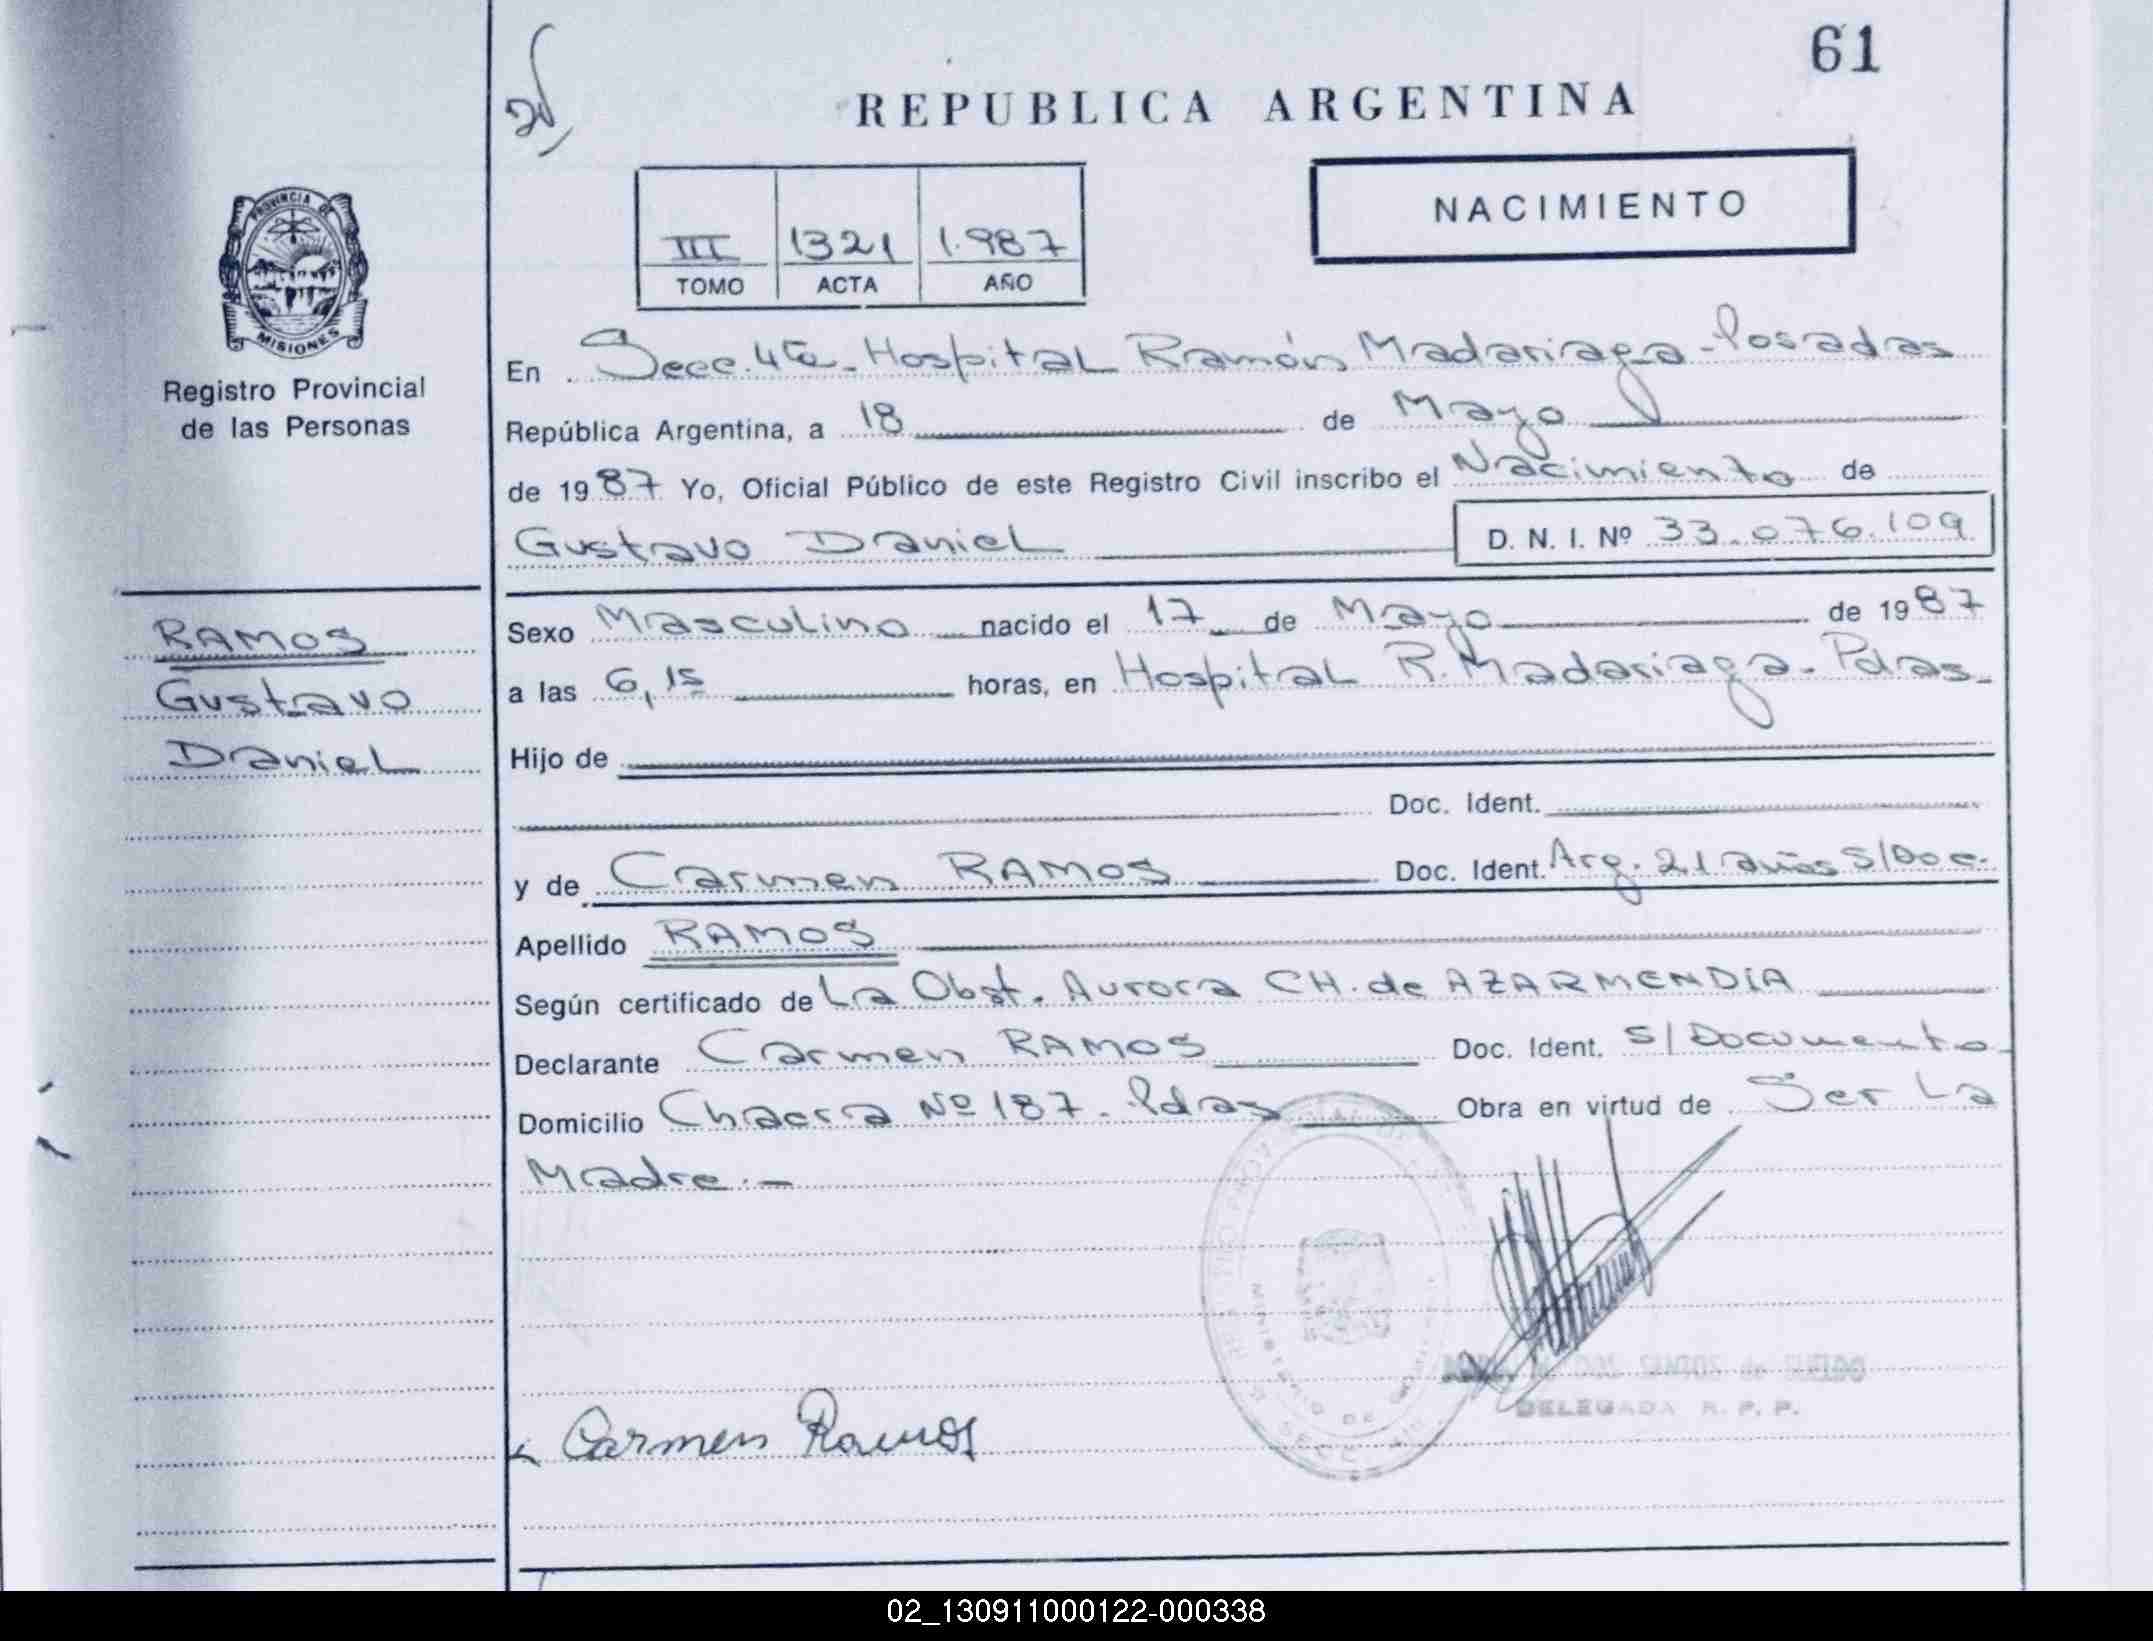 61
REPUBLICA ARGENTINA
NACIMIENTO
III 1321 1.987
TOMO ACTA AÑO
PROVINCIA DE
MISIONES
Registro Provincial
de las Personas
En Secc. 4ta - Hospital Ramón Madariaga - Posadas
República Argentina, a 18 de Mayo
de 1987 Yo, Oficial Público de este Registro Civil inscribo el Nacimiento de
Gustavo Daniel D. N. I. Nº 33.076.109
RAMOS
Gustavo
Daniel
Sexo Masculino nacido el 17 de Mayo de 1987
a las 6,15 horas, en Hospital R. Madariaga - Pdas.
Hijo de
Doc. Ident.
y de Carmen RAMOS Doc. Ident. Arg. 21 años S/Doc.
Apellido RAMOS
Según certificado de La Obst. Aurora CH. de AZARMENDIA
Declarante Carmen RAMOS Doc. Ident. S/Documento
Domicilio Chacra Nº 187 - Pdas Obra en virtud de Ser La
Madre.-
DELEGADA R. P. P.
Carmen Ramos
02_130911000122-000338